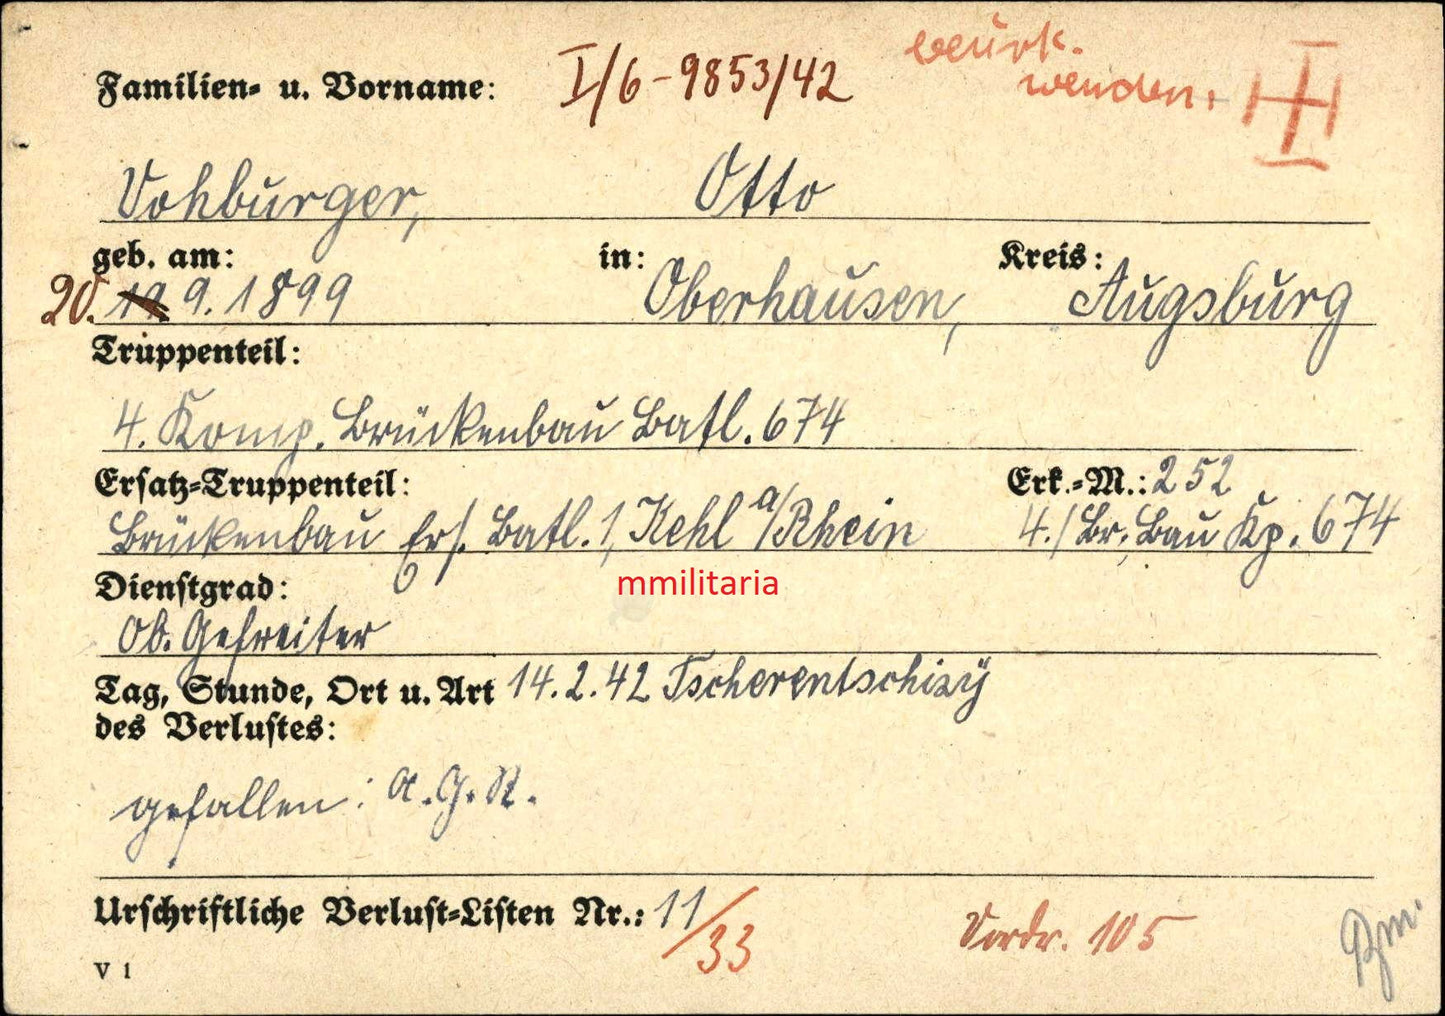 I/6-9853/42
beurk.
wenden.
Familien- u. Vorname:
Vohburger, Otto
geb. am: in: Kreis:
20. 19 9. 1899 Oberhausen, Augsburg
Truppenteil:
4. Komp. Brückenbau Batl. 674
Ersatz-Truppenteil: Erk.-M.: 252
Brückenbau Ers. Batl. 1, Kehl a/Rhein 4./Br. Bau Kp. 674
mmilitaria
Dienstgrad:
Ob. Gefreiter
Tag, Stunde, Ort u. Art 14.2.42 Tscherentschizy
des Verlustes:
gefallen: A.G.R.
Urschriftliche Verlust-Listen Nr.: 11/33
Vordr. 105
V 1